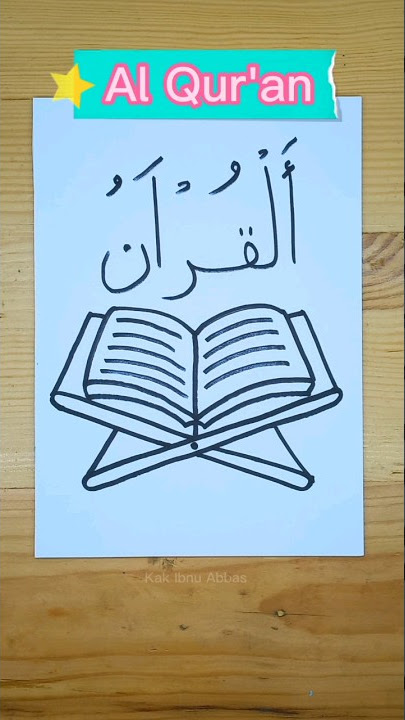 Al Qur'an
أَلْقُرْاَنُ
Kak Ibnu Abbas